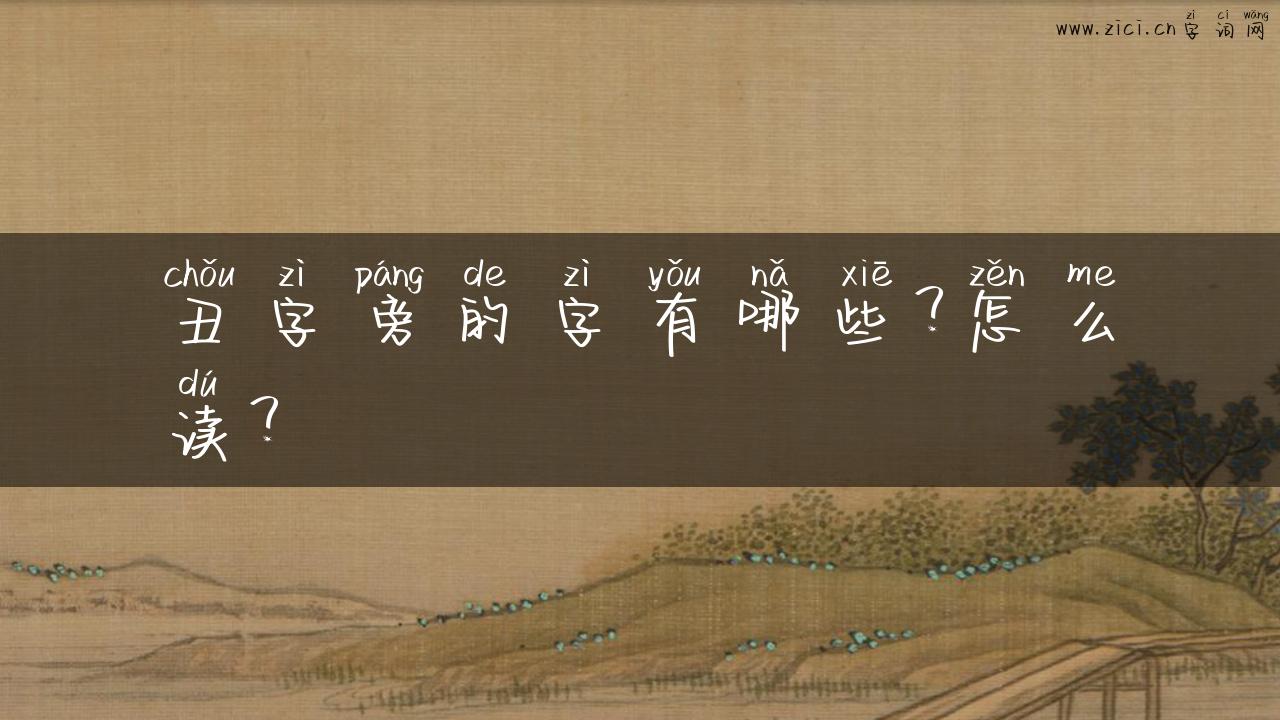 zì cí wǎng
www.zici.cn字词网
chǒu zì páng de zì yǒu nǎ xiē zěn me
丑字旁的字有哪些?怎么
dú
读?